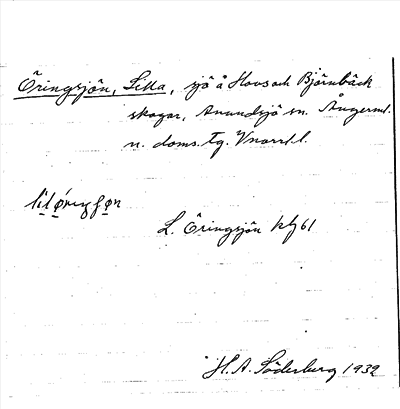 Öringsjön, Lilla, sjö å Hoos och Björnbäck
skogar, Anundsjö sn. Ångerml.
n. doms. tg. Vnorrl. l.
L. Öringsjön kbl 61
H. A. Söderberg 1932